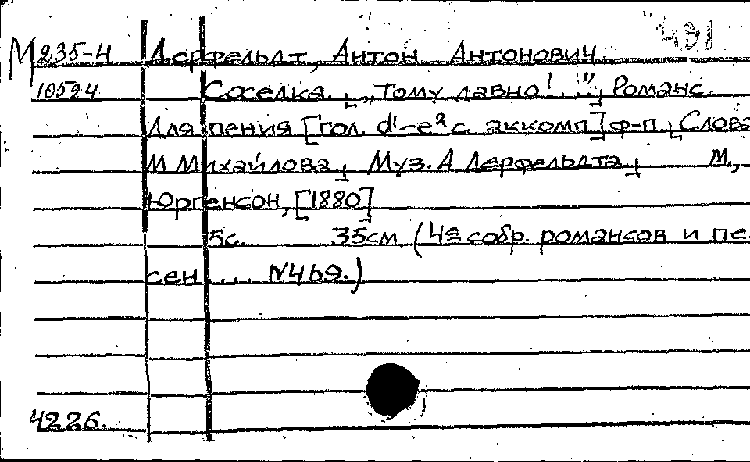 431
М 235-4 Дерфельдт, Антон Антонович.
10524 Соседка. „Тому давно!..." Романс.
Для пения [гол. d¹-e² с. аккомп.] ф-п., Слова
М. Михайлова, Муз. А. Дерфельдта, М.,
Юргенсон, [1880]
5с. 35см (4е собр. романсов и пе-
сен ... N469.)
4226.